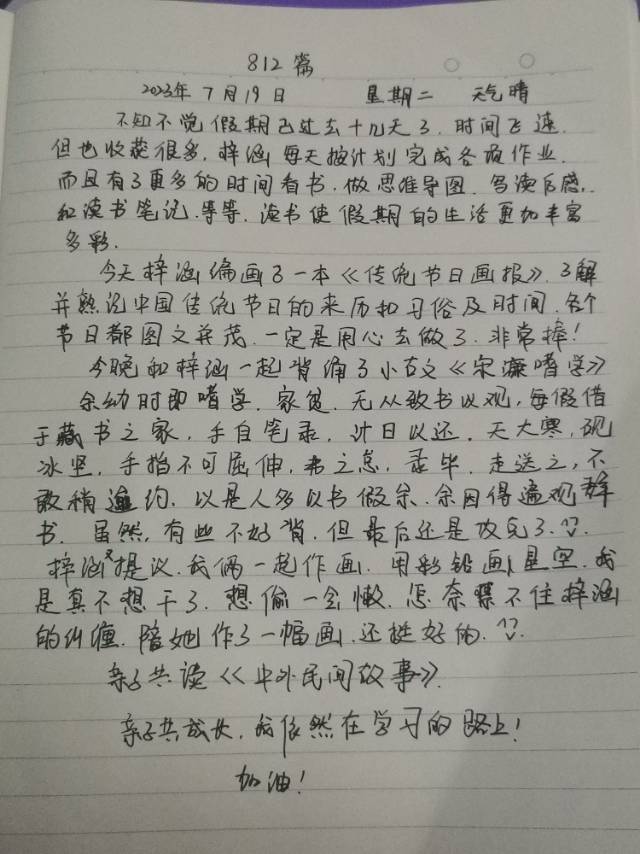 812篇
2023年7月19日 星期二 天气晴
不知不觉假期已过去十几天了,时间飞速.
但也收获很多,梓涵每天按计划完成各项作业.
而且有了更多的时间看书.做思维导图.写读后感,
和读书笔记.等等.读书使假期的生活更加丰富
多彩.
今天梓涵编画了一本《传统节日画报》.了解
并熟记中国传统节日的来历和习俗及时间.各个
节日都图文并茂.一定是用心去做了.非常棒!
今晚和梓涵一起背诵了小古文《宋濂嗜学》
余幼时即嗜学.家贫.无从致书以观,每假借
于藏书之家,手自笔录.计日以还.天大寒,砚
冰坚.手指不可屈伸,弗之怠.录毕.走送之,不
敢稍逾约.以是人多以书假余.余因得遍观群
书.虽然,有些不好背.但最后还是攻克了.
梓涵又提议.我俩一起作画.用彩铅画星空.我
是真不想干了.想偷一会懒.怎奈禁不住梓涵
的纠缠.陪她作了一幅画.还挺好的.
亲子共读《中外民间故事》.
亲子共成长,我依然在学习的路上!
加油!